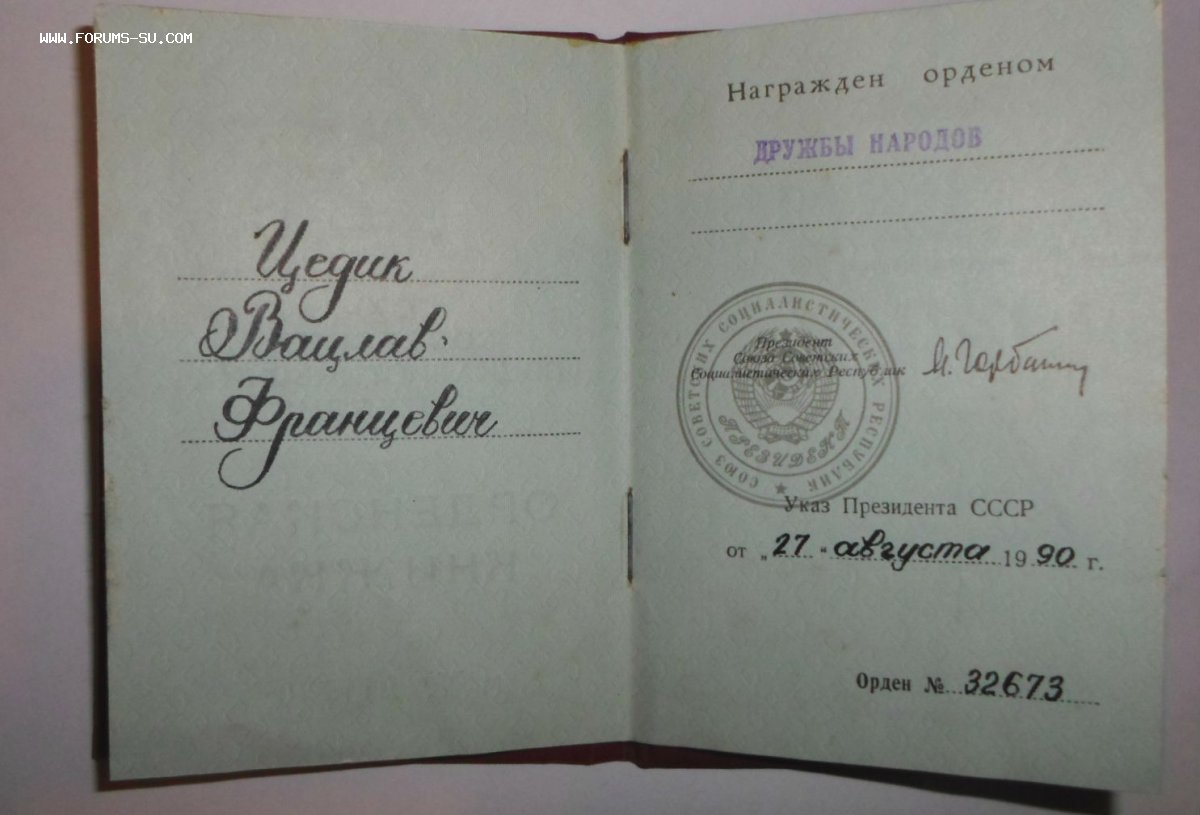 WWW.FORUMS-SU.COM
Цедик
Вацлав
Францевич
Награжден орденом
ДРУЖБЫ НАРОДОВ
СОЮЗ СОВЕТСКИХ СОЦИАЛИСТИЧЕСКИХ РЕСПУБЛИК
ПРЕЗИДЕНТ
Президент
Союза Советских
Социалистических Республик
М. Горбачев
Указ Президента СССР
от „27“ августа 1990 г.
Орден № 32673